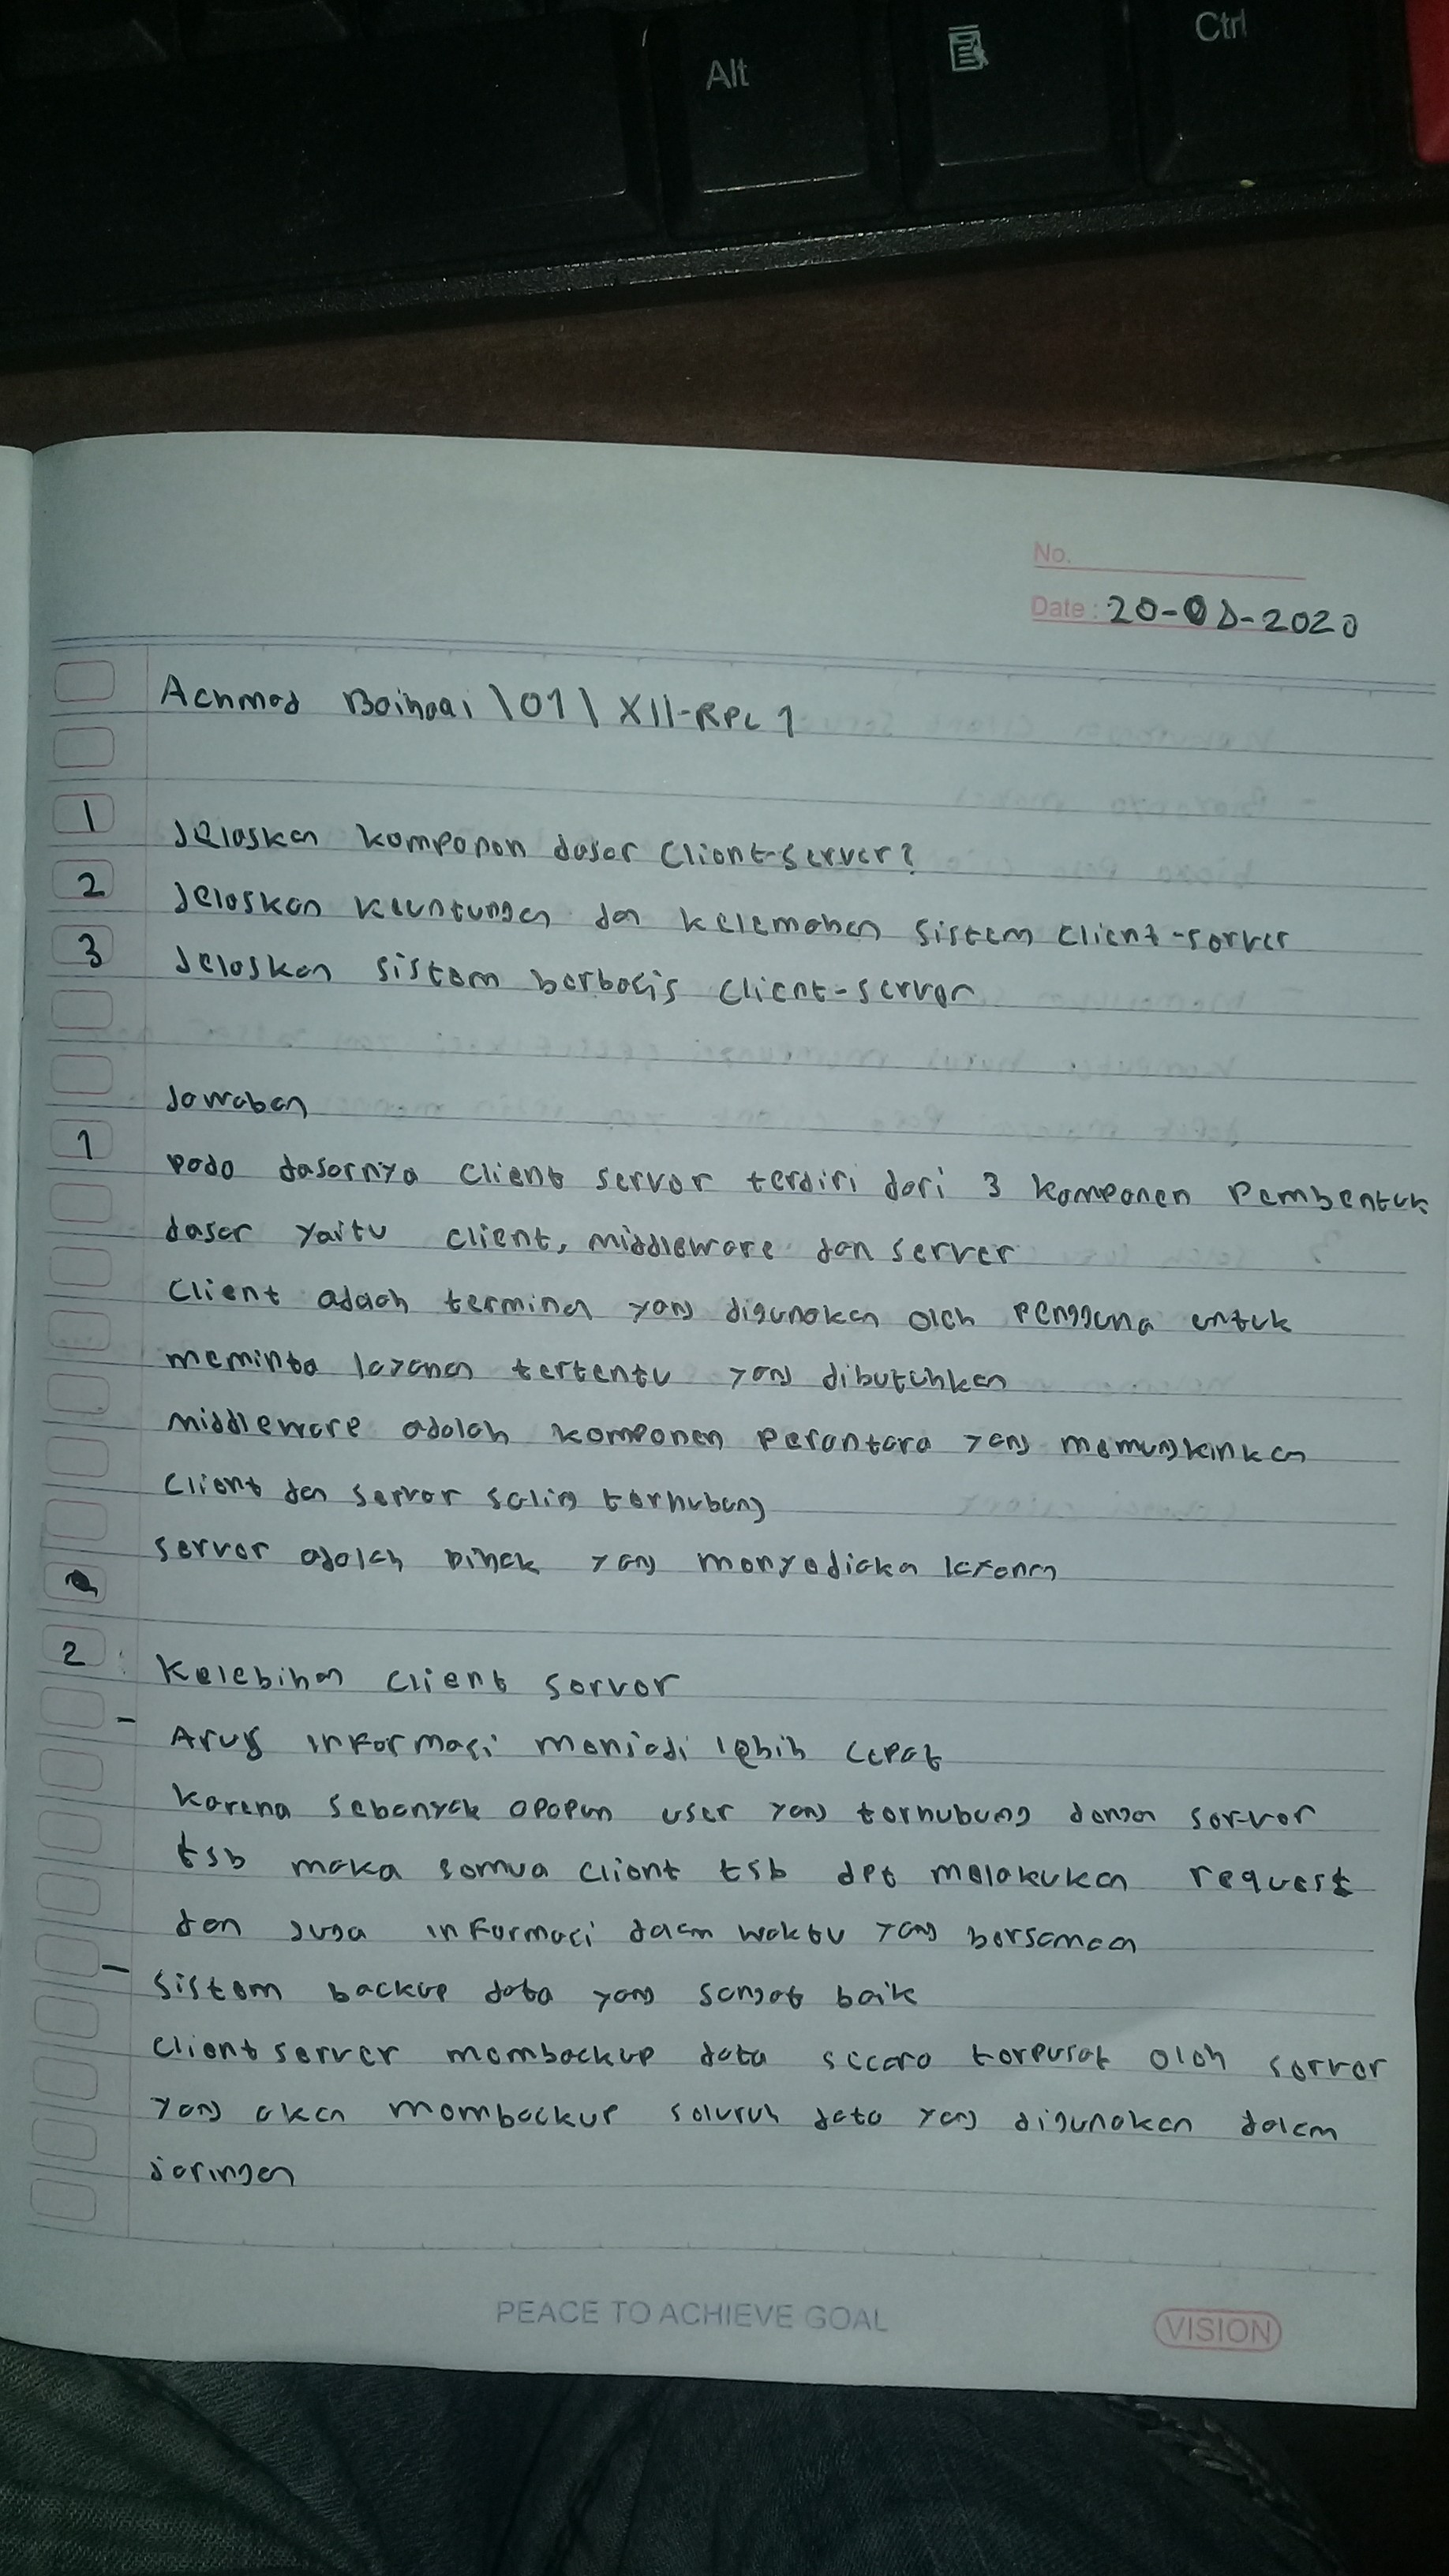 Alt
Ctrl
No.
Date : 20-08-2020
Achmad Baihaqi \01\ XII-RPL 1
1 Jelaskan komponen dasar Client-Server?
2 Jelaskan keuntungan dan kelemahan sistem client-server
3 Jelaskan sistem berbasis client-server
Jawaban
1 pada dasarnya client server terdiri dari 3 komponen pembentuk
dasar yaitu client, middleware dan server
Client adaah terminal yang digunakan oleh pengguna untuk
meminta layanan tertentu yang dibutuhkan
middleware adalah komponen perantara yang memungkinkan
Client dan server saling terhubung
server adalah pihak yang menyediaka layanan
2 Kelebihan client server
- Arus informasi menjadi lebih cepat
karena sebanyak apapun user yang terhubung dengan server
tsb maka semua client tsb dpt melakukan request
dan juga informasi daam waktu yang bersamaan
- sistem backup data yang sangat baik
client server membackup data secara terpusat oleh server
yang akan membackup seluruh data yang digunakan dalam
jaringan
PEACE TO ACHIEVE GOAL
VISION